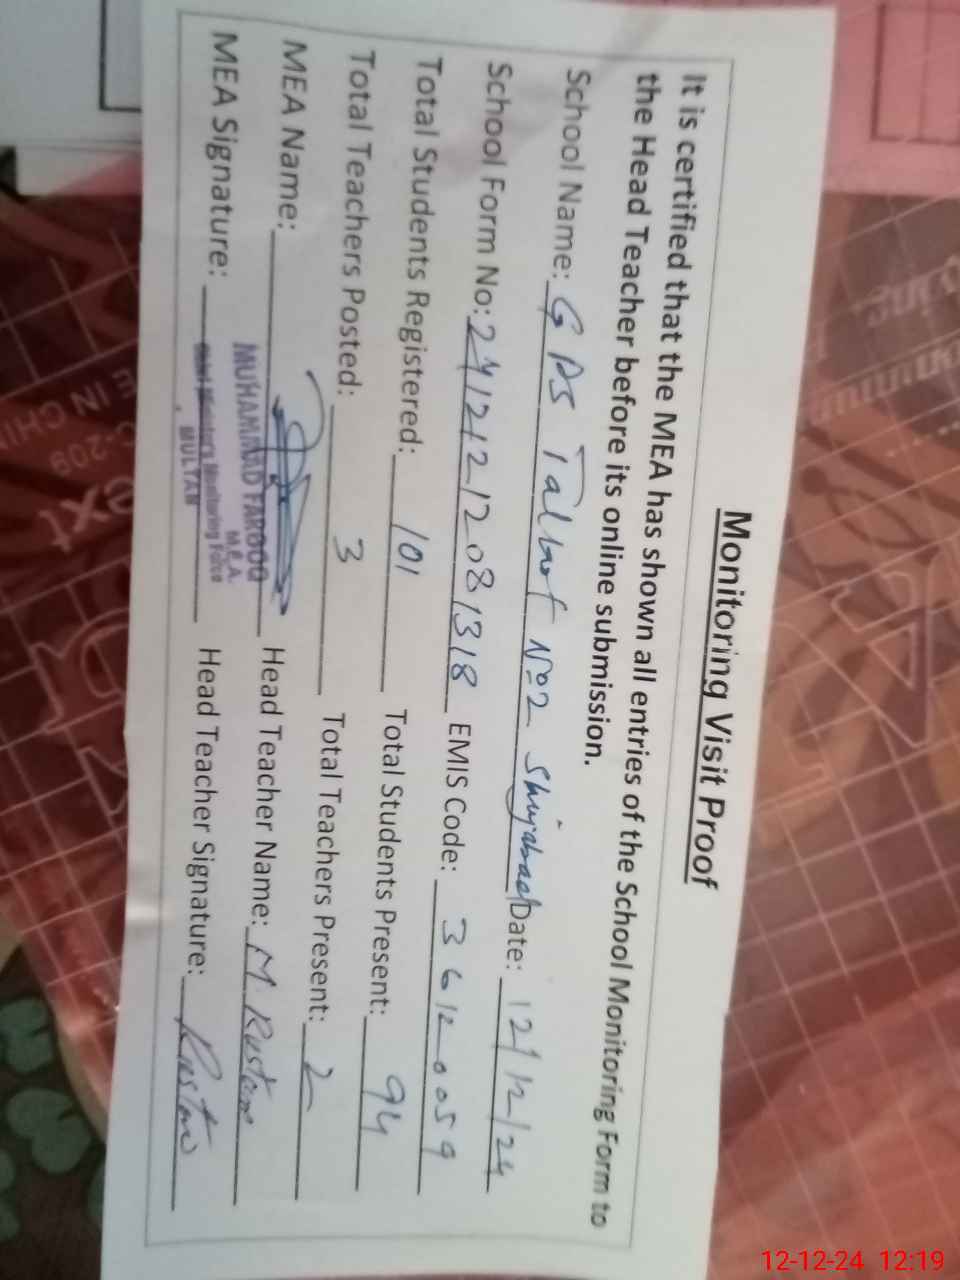 Monitoring Visit Proof
It is certified that the MEA has shown all entries of the School Monitoring Form to
the Head Teacher before its online submission.
School Name: GPS Talkot No2 Shujabad Date: 12/12/24
School Form No: 24121212081318 EMIS Code: 36120059
Total Students Registered: 101 Total Students Present: 94
Total Teachers Posted: 3 Total Teachers Present: 2
MEA Name: Head Teacher Name: M. Rustam
MEA Signature: Head Teacher Signature: Rustam
MUHAMMAD FAROOQ
M.E.A.
Chief Minister's Monitoring Force
MULTAN
E IN CHIN
C-209
ext
12-12-24 12:19